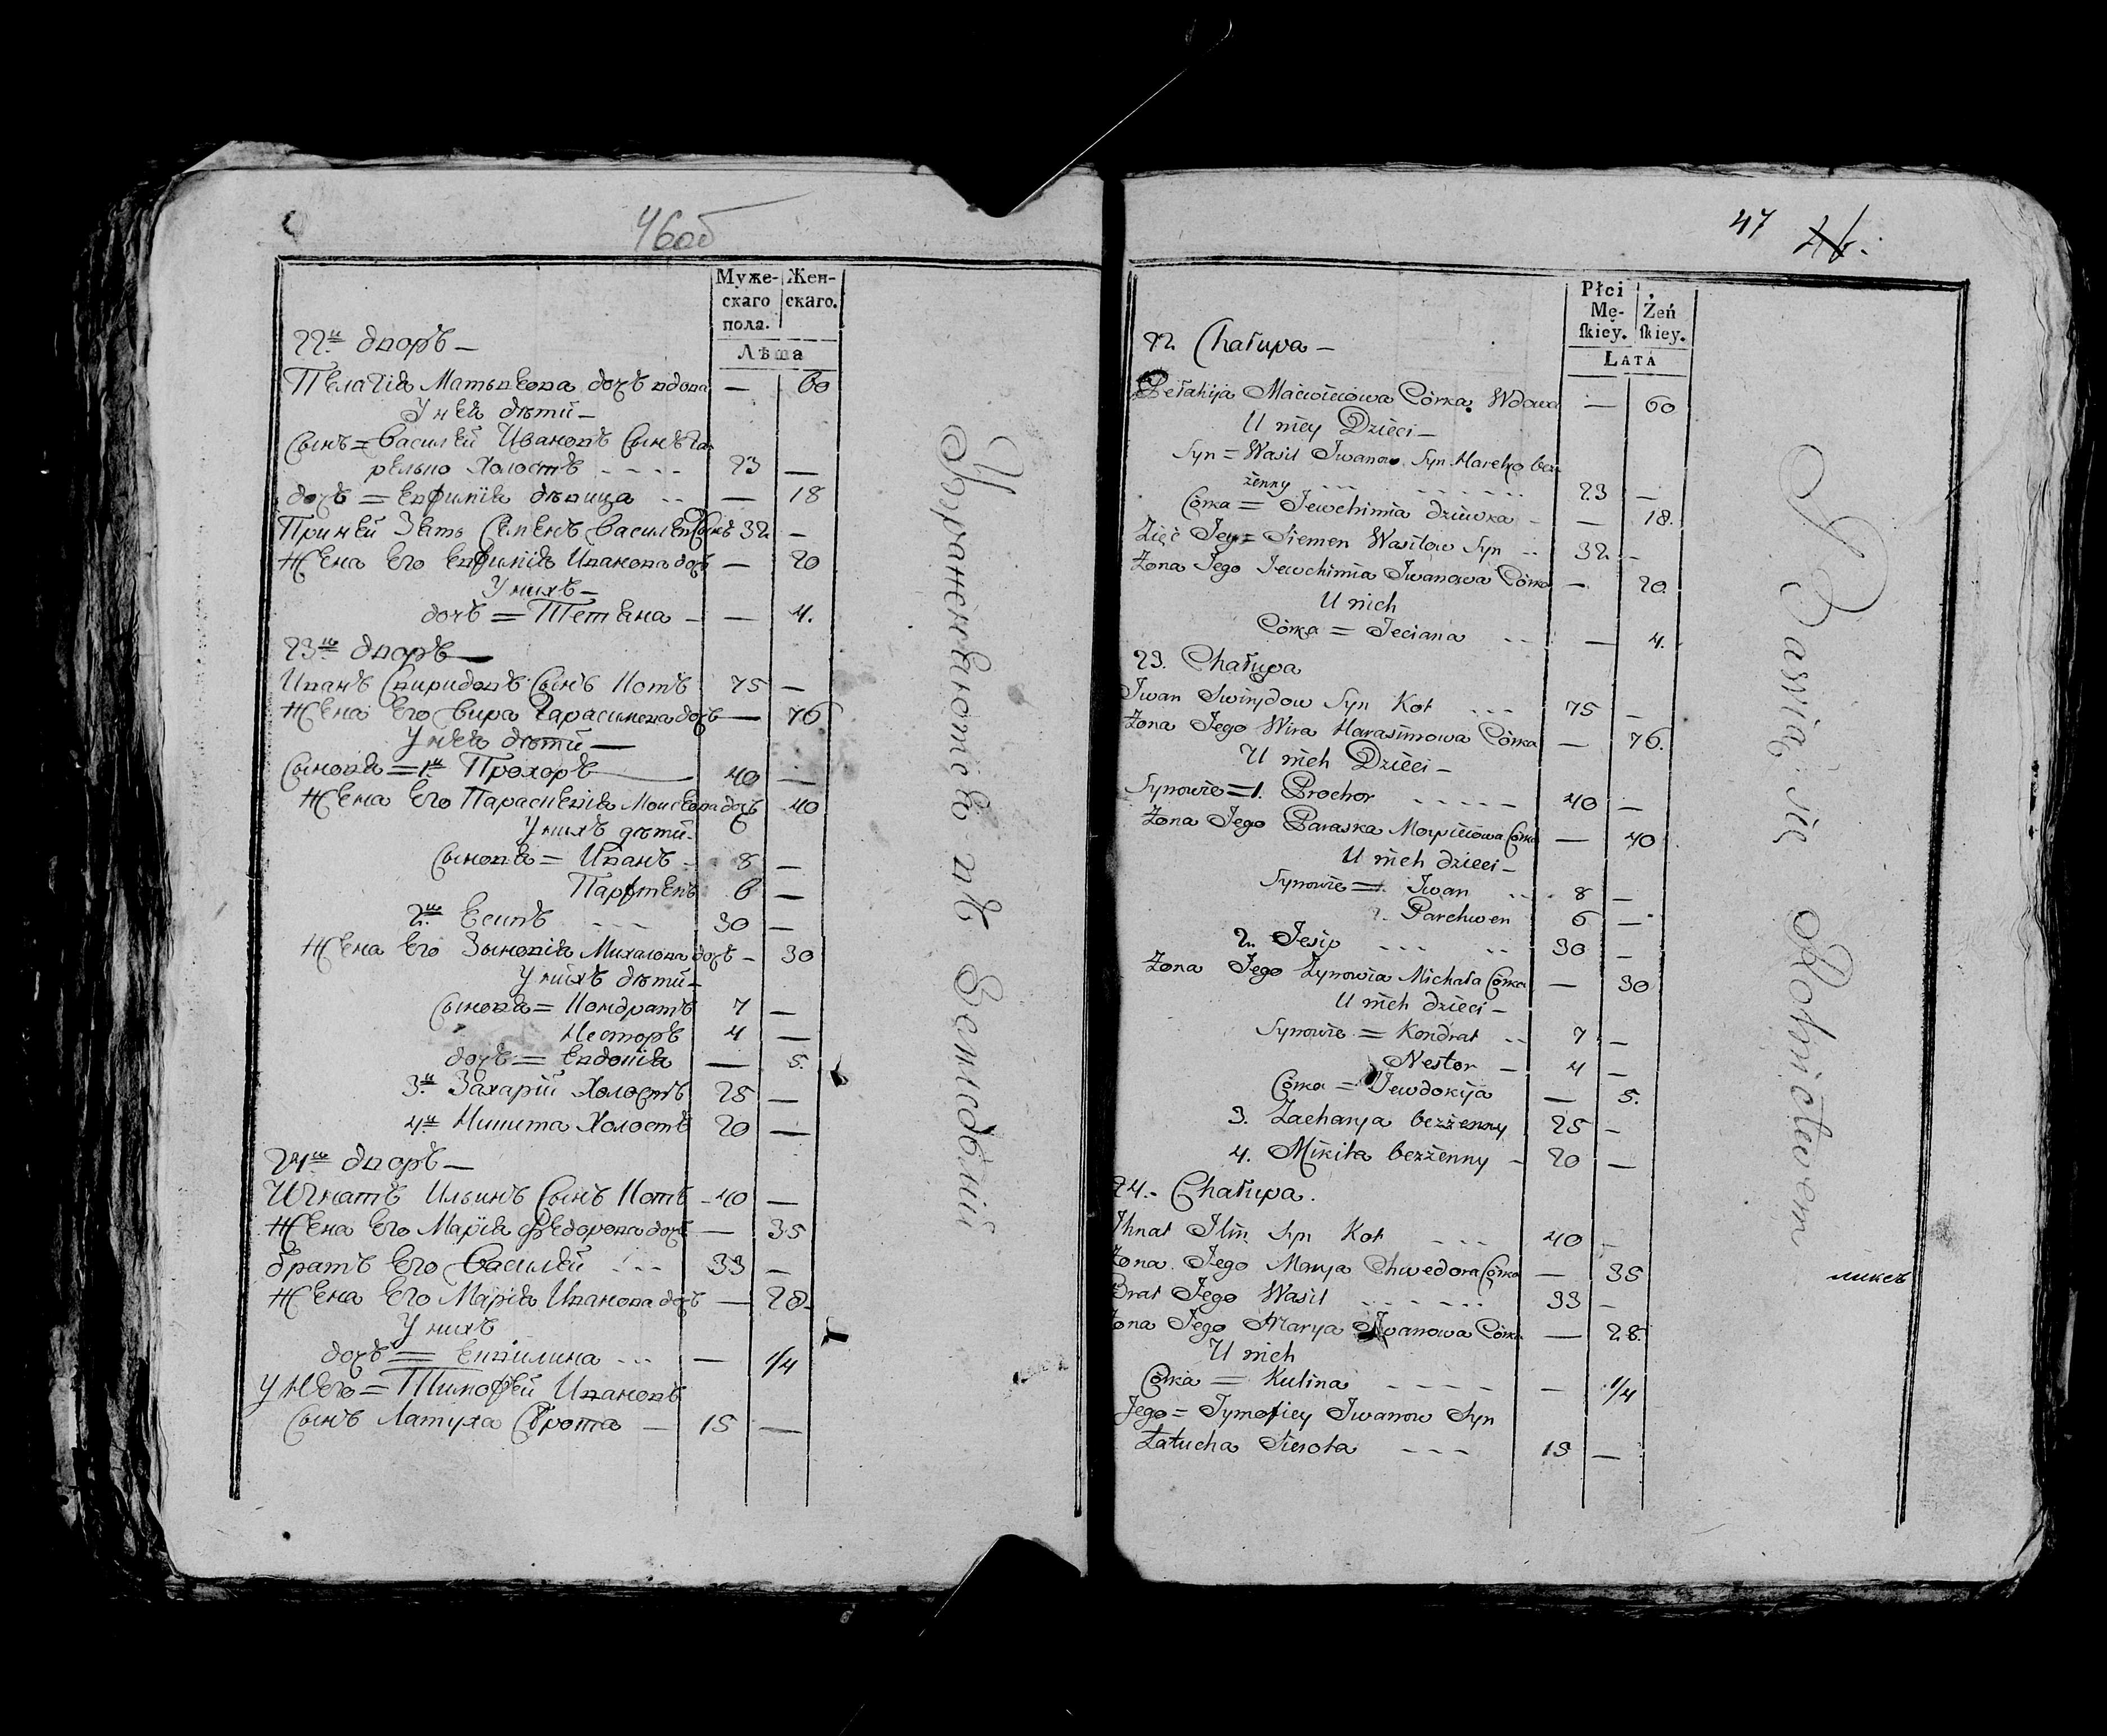 46об
Муже-
скаго
пола.
Жен-
скаго.
Лѣта
22й дворъ —
Пелагія Матвѣева дочь вдова — 60
У ней дѣти —
Сынъ = Василій Ивановъ Сынъ Га-
релко Холостъ - - - - 23 —
дочь = Евфимія дѣвица - - — 18
При ней Зять Семенъ Васильевъ Сынъ 32 —
Жена Его Евфимія Иванова дочь — 20
У нихъ —
дочь = Тетяна — — 4.
23й дворъ —
Иванъ Свиридовъ Сынъ Котъ 75 —
Жена Его Вира Гарасимова дочь — 76
У нея дѣти —
Сыновя = 1й Прохоръ 40 —
Жена Его Парасковія Моисѣева дочь 40
У нихъ дѣти —
Сыновя = Иванъ - 8 —
Парфтенъ 6 —
2й Есипъ - - - 30 —
Жена Его Зыновія Михалова дочь — 30
У нихъ дѣти —
Сыновя = Кондратъ 7 —
Несторъ 4 —
дочь = Евдокія — 5.
3й Захарій Холостъ 25 —
4й Никита Холостъ 20 —
24й дворъ —
Игнатъ Ильинъ Сынъ Котъ - 40 —
Жена Его Марія Федорова дочь — 35
Братъ Его Василій - - - 33 —
Жена Его Марія Иванова дочь — 28
У нихъ
дочь = Еккилина - - - — 1/4
У Него = Тимофѣй Ивановъ
Сынъ Латуха Сирота — 15 —
Упражняются въ Земледѣлій
47
Płci
Mę-
ſkiey.
Żeń
ſkiey.
LATA
22 Chałupa —
Pełahija Maciwiejowa Córka Wdowa — 60
U niey Dzieci —
Syn = Wasil Iwanow Syn Harełko bez-
żenny - - - 23 —
Córka = Jewchimia dziewka - — 18.
Zięć Jey = Siemen Wasilow Syn - - 32 —
Żona Jego Jewchimia Iwanowa Córka — 20.
U nich
Córka = Teciana - - — 4.
23. Chałupa
Iwan Swirydow Syn Kot - - - 75 —
Żona Jego Wira Harasimowa Córka — 76.
U nich Dzieci —
Synowie = 1. Prochor - - - - - 40 —
Żona Jego Paraska Moysieiowa Córka — 40
U nich dzieci —
Synowie = Iwan - - 8 —
Parchwen 6 —
2. Jesip - - - - - 30 —
Żona Jego Zynowia Michała Córka — 30
U nich dzieci —
Synowie = Kondrat - - 7 —
Nestor — 4 —
Córka = Jewdokija — 5.
3. Zacharya bezżenny 25 —
4. Mikita bezżenny - 20 —
24. Chałupa.
Ihnat Ilin Syn Kot - - - 40 —
Żona Jego Marya Chwedora Córka — 35
Brat Jego Wasil - - - - - 33 —
Żona Jego Marya Iwanowa Córka — 28.
U nich
Córka = Kulina - - - - — 1/4
Jego = Tymofiey Iwanow Syn
Łatucha Sierota - - - 15 —
Bawią się Rolnictwem